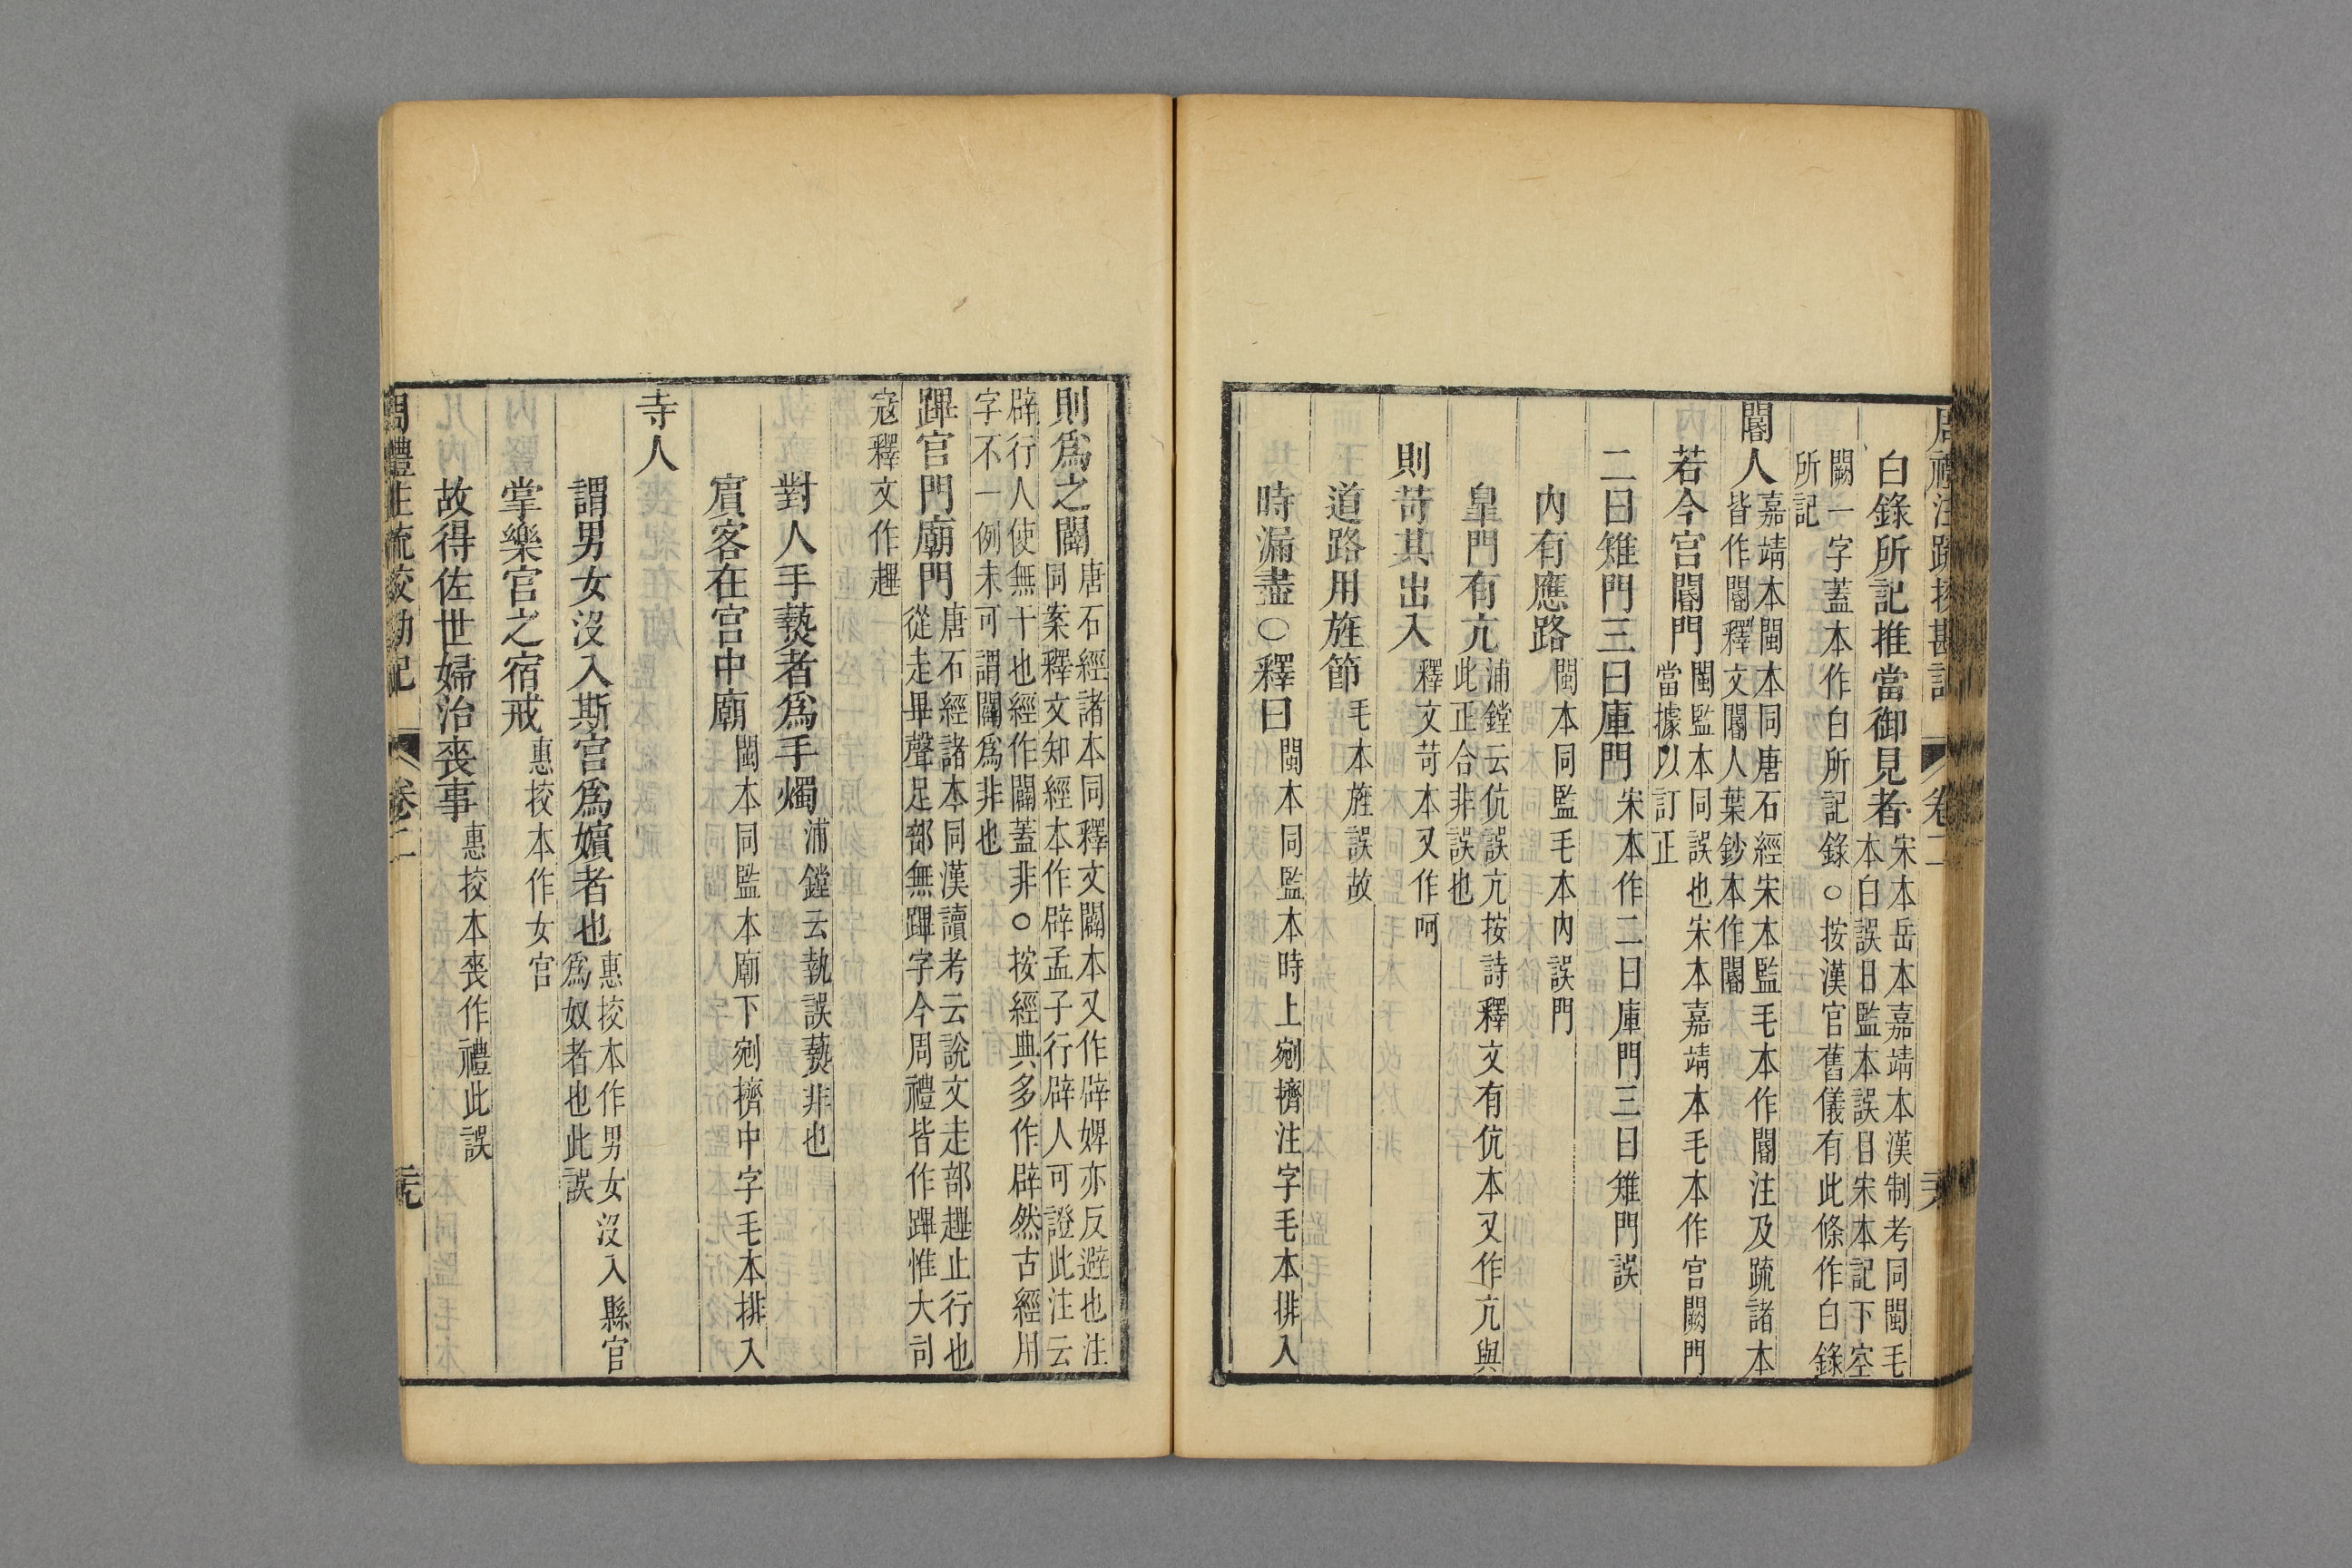 周禮注疏挍勘記 卷二 天
白錄所記推當御見者 宋本岳本嘉靖本漢制考同閩毛
本白誤日監本誤目宋本記下空
闕一字蓋本作白所記錄○按漢官舊儀有此條作白錄
所記
閽人 嘉靖本閩本同唐石經宋本監毛本作閽注及疏諸本
皆作閽釋文閽人葉鈔本作閽
若今宮閽門 閩監本同誤也宋本嘉靖本毛本作宮闕門
當據以訂正
二曰雉門三曰庫門 宋本作二曰庫門三曰雉門誤
內有應路 閩本同監毛本內誤門
皐門有亢 浦鏜云伉誤亢按詩釋文有伉本又作亢與
此正合非誤也
則苛其出入 釋文苛本又作呵
道路用旌節 毛本旌誤故
時漏盡○釋曰 閩本同監本時上剜擠注字毛本排入
則爲之闢 唐石經諸本同釋文闢本又作辟婢亦反避也注
同案釋文知經本作辟孟子行辟人可證此注云
辟行人使無干也經作闢蓋非○按經典多作辟然古經用
字不一例未可謂闢爲非也
蹕宮門廟門 唐石經諸本同漢讀考云說文走部趩止行也
從走畢聲足部無蹕字今周禮皆作蹕惟大司
寇釋文作趩
對人手爇者爲手燭 浦鏜云執誤爇非也
賓客在宮中廟 閩本同監本廟下剜擠中字毛本排入
寺人
謂男女沒入斯宮爲嬪者也 惠挍本作男女沒入縣官
爲奴者也此誤
掌樂宮之宿戒 惠挍本作女宮
故得佐世婦治喪事 惠挍本喪作禮此誤
周禮注疏挍勘記 卷二 元